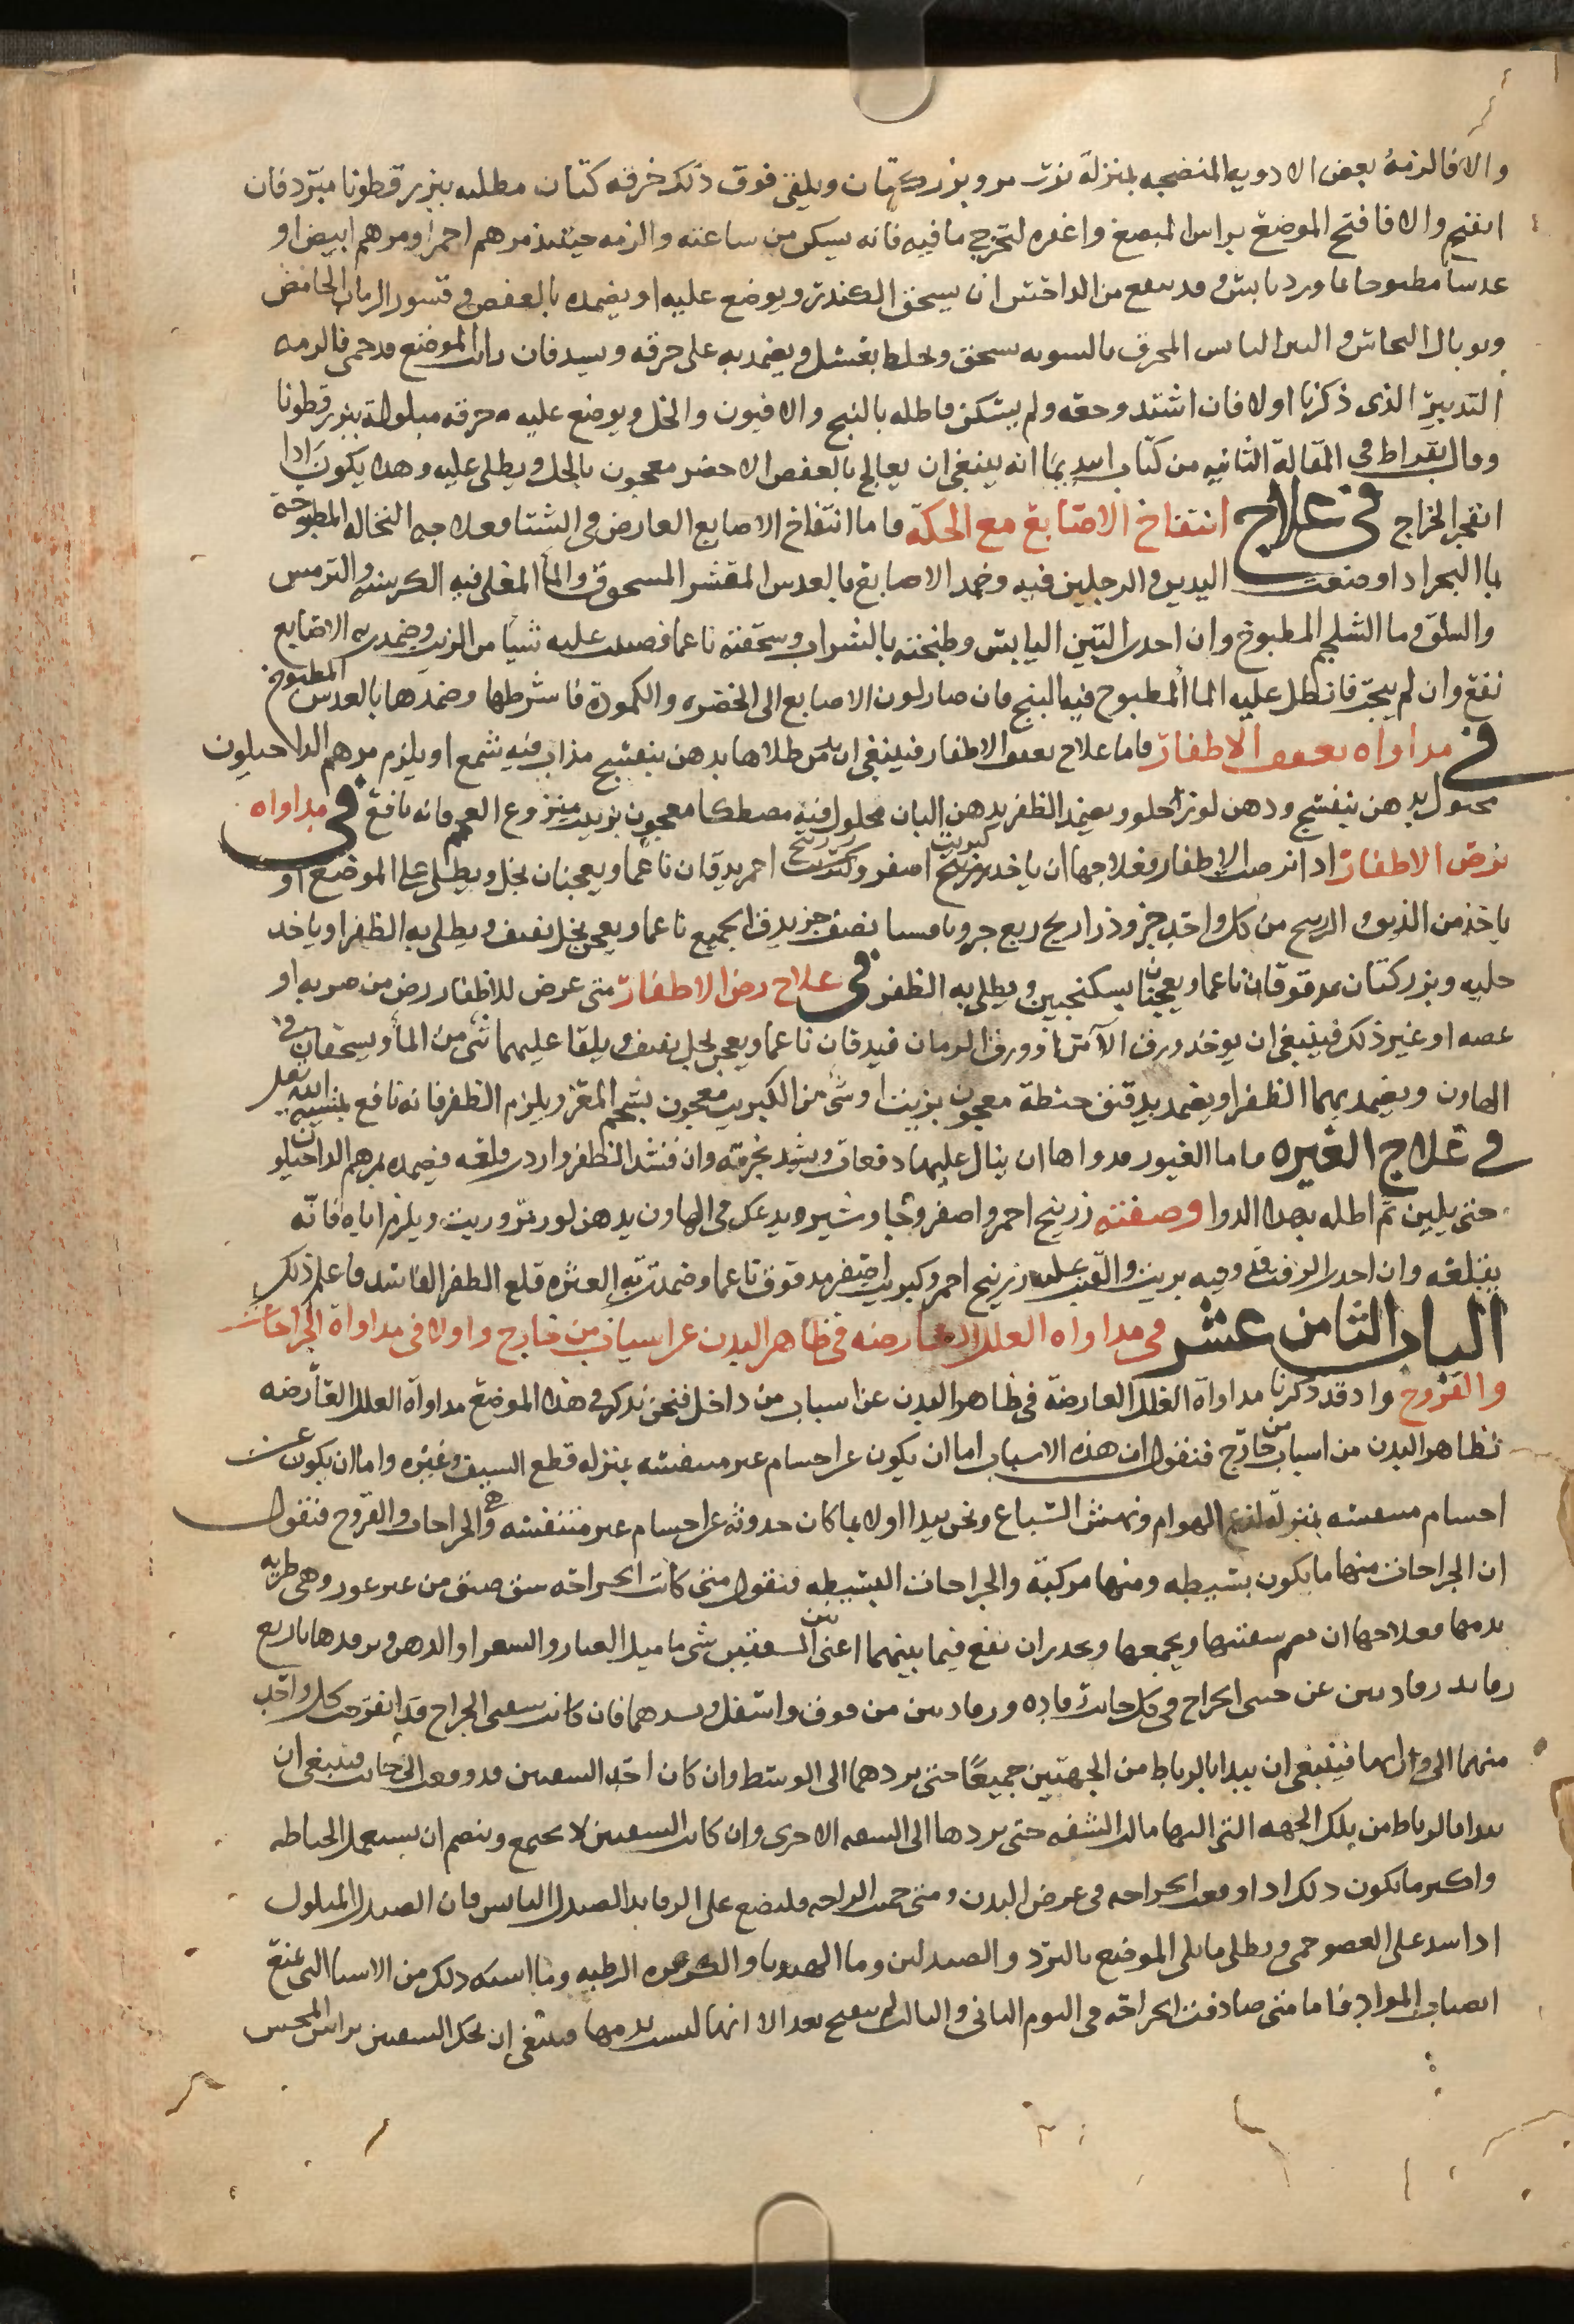 والا فالزمه بعض الادويه المنضجه بمنزلة بزر مرو وبزر كتان ويلقى فوق ذلك خرقه كتان مطليه ببزر قطونا مبرّد فان
انفتح والا فافتح الموضع براس المبضع واغمره لتخرج ما فيه فانه يسكن من ساعته والزمه حينئذ مرهم احمر او مرهم ابيض او
عدسا مطبوخا بماورد يابس وقد ينفع من الداخس ان يسحق الكندر ويوضع عليه او يضمده بالعفص وقشور الرمان الحامض
وتوبال النحاس والتين اليابس المحرق بالسويه يسحق ويخلط بعسل ويضمد به على خرقه ويشد فان رايت الموضع قد حمى فالزمه
التدبير الذى ذكرنا اولا فان اشتد وجعه ولم يسكن فاطله بالبنج والافيون والخل ويوضع عليه خرقه مبلوله ببزر قطونا
وقال بقراط فى المقالة الثانيه من كتاب ابيديميا انه ينبغى ان يعالج بالعفص الاخضر معجون بالخل ويطلى عليه وهذا يكون اذا
انفجر الخراج فى علاج انتفاخ الاصابع مع الحكة فاما انتفاخ الاصابع العارض فى الشتا فعلاجه النخاله المطبوخة
بما البحر اذا وضعت اليدين والرجلين فيه وضمد الاصابع بالعدس المقشر المسحوق والما المغلى فيه الكرسنه والترمس
والسلق وما الشلجم المطبوخ وان اخذت التين اليابس وطبخته بالشراب وسحقته ناعما فصببت عليه شيا من الزيت وضمدت به الاصابع
نفع وان لم يجرّ فانطل عليه الما المطبوخ فيه البنج فان صار لون الاصابع الى الخضره والكموده فاشرطها وضمدها بالعدس المطبوخ
فى مداواه تعقف الاظفار فاما علاج تعقف الاظفار فينبغى ان يدمن طلاها بدهن بنفسج مذاب فيه شمع او يلزم مرهم الداخيلون
محلول بدهن بنفسج ودهن لوز احلو ويضمد الظفر بدهن البان محلول فيه مصطكا معجون بزبيب منزوع العجم فانه نافع فى مداواه
برص الاظفار اذا ابرصت الاظفار فعلاجها ان ياخذ كبريت اصفر وزرنيخ احمر يدقان ناعما ويعجنان بخل ويطلى على الموضع او
ياخذ من الذبق والزرنيخ من كل واحد جزو وذراريح ربع جزو ناعما نصف جز يدق الجميع ناعما ويعجن بخل ثقيف ويطلى به الظفر او ياخذ
حلبه وبزر كتان مدقوقان ناعما ويعجنا بسكنجبين ويطلى به الظفر فى علاج رض الاظفار متى عرض للاظفار رض من ضربه او
عضه او غير ذلك فينبغى ان يوخذ ورق الآس او ورق الرمان فيدقان ناعما ويعجن بخل ثقيف ويلقا عليهما شى من الما ويسحقان فى
الهاون ويضمد بهما الظفر او يضمد بدقيق حنطة معجون بزيت او شى من الكبريت معجون بشحم المعز ويلزم الظفر فانه نافع بمشيه الله تعلى
فى علاج الغيره فاما الغيور فدواها ان ينال عليها دفعات ويشد بخرقه وان فسد الظفر واردت قلعه فضمده بمرهم الداخيلون
حتى يلين ثم اطله بهذا الدوا وصفته زرنيخ احمر واصفر وجاوشير ويدعك فى الهاون بدهن لوز مرّ وزيت ويلزم اياه فانّه
يقلعه وان اخذت الزفت وذوبه بزيت والقيت عليه زرنيخ احمر وكبريت اصفر مدقوق ناعما وضمدت به العشره قلع الظفر الفاسد فاعلم ذلك
الباب الثامن عشر فى مداواه العلل العارضه فى ظاهر البدن عن اسباب من خارج واولا فى مداواة الجراحات
والقروح واذ قد ذكرنا مداواة العلل العارضة فى ظاهر البدن عن اسباب من داخل فنحن نذكر فى هذا الموضع مداواة العلل العارضه
لظاهر البدن من اسباب من خارج فنقول ان هذه الاسباب اما ان يكون عن اجسام غير متنفسه بمنزله قطع السيف وغيره واما ان يكون عن
اجسام متنفسه بمنزلة لذع الهوام ونهش السباع ونحن نبدا اولا بما كان حدوثه عن اجسام غير متنفسه وهى الجراحات والقروح فنقول
ان الجراحات منها ما يكون بسيطه ومنها مركبة والجراحات البسيطه فنقول متى كانت الجراحه شق ضيق من غير غور وهى طريه
بدمها فعلاجها ان تضم شفتيها ويجمعها ويحذر ان تقع فيما بينهما اعنى الشفتين شى ما ميل الغبار والشعر او الدهن وترفدها باربع
رفايد رفادتين عن جنبى الجراح فى كل جانب رفاده ورفادتين من فوق واسفل وتشدهما فان كانت شفتى الجراح قد انفرجت كل واحد
منهما الى ورايها فينبغى ان يبدا بالرباط من الجهتين جميعًا حتى يردهما الى الوسط وان كان احد الشفتين قد وقعت الى جانب فينبغى ان
يبدا بالرباط من تلك الجهه التى اليها مالت الشفه حتى يردها الى الشفه الاخرى وان كانت الشفتين لا تجتمع وتنضم ان يستعمل الخياطه
واكثر ما يكون ذلك اذا وقعت الجراحه فى عرض البدن ومتى حميت الجراحه فليضع على الرفايد الصندل اليابس فان الصندل المبلول
اذا شد على العضو حمى ويطلى ما يلى الموضع بالبرد والصندلين وما الهندبا والكزبره الرطبه وما اشبه ذلك من الاشيا التى تمنع
انصباب المواد فاما متى صادفت الجراحه فى اليوم الثانى والثالث لم تنفتح بعد الا انها ليست بدمها فينبغى ان تحك الشفتين براس المجس